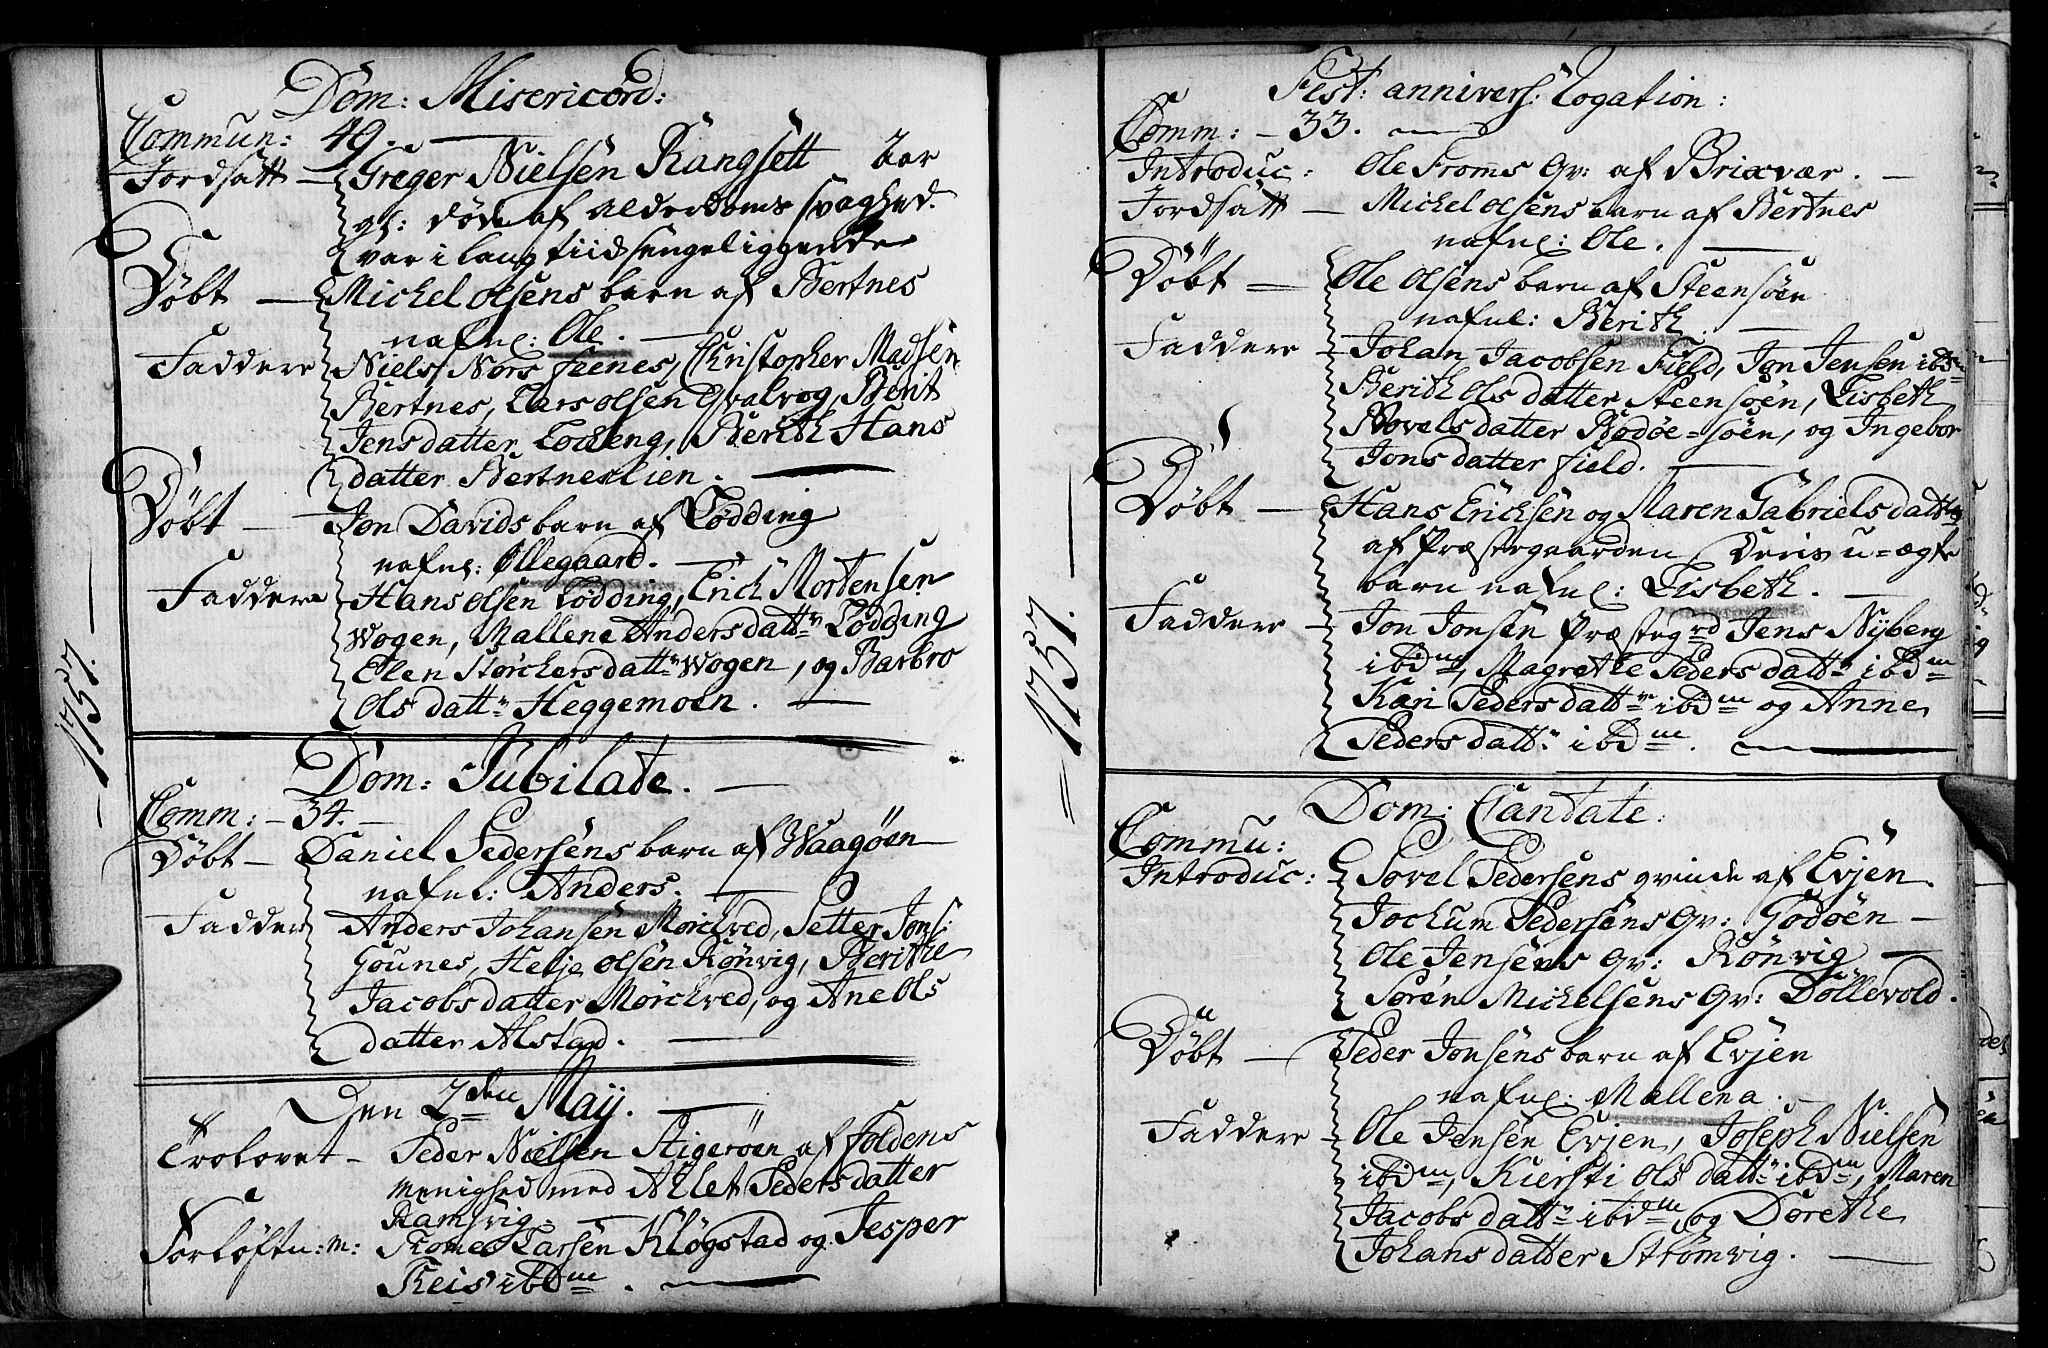 Dom: Misericord:
Commun: 49.
Jordsatt - Greger Nielsen Rangsett aar
gl: døde af alderdoms svaghed.
var i lang tiid sengeliggende
Døbt - Michel Olsens barn af Bertnes
nafnl: Ole.
Faddere Niels Nors feenes, Christopher Madsen
Bertnes, Lars Olsen Qvalvog, Berit
Jensdatter Locheng, Berith Hans
datter Bertneslien.
Døbt - Jon Davids barn af Lødding
nafnl: Ollegaard.
Faddere Hans Olsen Lødding, Erich Mortensen
Wogen, Mallene Andersdattr Lødding
Elen Storchersdattr Wogen, og Barbro
Olsdattr Heggemoen.
1757.
Dom: Jubilate.
Comm: - 34. -
Døbt - Daniel Pedersens barn af Waagøen
nafnl: Anders.
Faddere Anders Johansen Morchved, Petter Jons:
Gounes, Helje Olsen Rønvig, Berithe
Jacobsdatter Mørchved, og Ane Ols
datter Alstad.
Den 2den Maij.
Trolovet - Peder Nielsen Stigerøen af Foldens
menighed med Ahlet Pedersdatter
Ramsvig.
Forløftn: m: Tomes Larsen Kløgstad og Jesper
Theis ibdm.
Fest: annivers: Rogation:
Comm: - 33.
Introduc: Ole Fromms Qv: af Brixvær.
Jordsatt - Michel Olsens barn af Bertnes
nafnl: Ole.
Døbt - Ole Olsens barn af Steensøen
nafnl: Berith.
Faddere - Johan Jacobsen Field, Jon Jensen ibdm
Berith Olsdatter Steensøen, Lisbeth
Povelsdatter Bodøe-søen, og Ingebor
Jonsdatter field.
Døbt - Hans Erichsen og Maren Gabrielsdattr
af Præstegaarden Deris u-ægte
barn nafnl: Lisbeth.
Faddere - Jon Jonsen Præstegrd Jens Nyberg
ibdm, Magrethe Pedersdattr ibdm
Kari Pedersdattr ibdm og Anne
Pedersdattr ibdm.
1757.
Dom: Cantate:
Commu:
Introduc: Povel Pedersens qvinde af Evjen.
Jochum Pedersens Qv: Godøen -
Ole Jensens Qv: Rønvig -
Søren Michelsens Qv: Döllevold.
Døbt - Peder Jonsens barn af Evjen
nafnl: Mallena.
Faddere - Ole Jensen Evjen, Joseph Nielsen
ibdm, Kiersti Olsdattr ibdm, Maren
Jacobsdattr ibdm, og Dorethe
Johansdatter Strømvig.